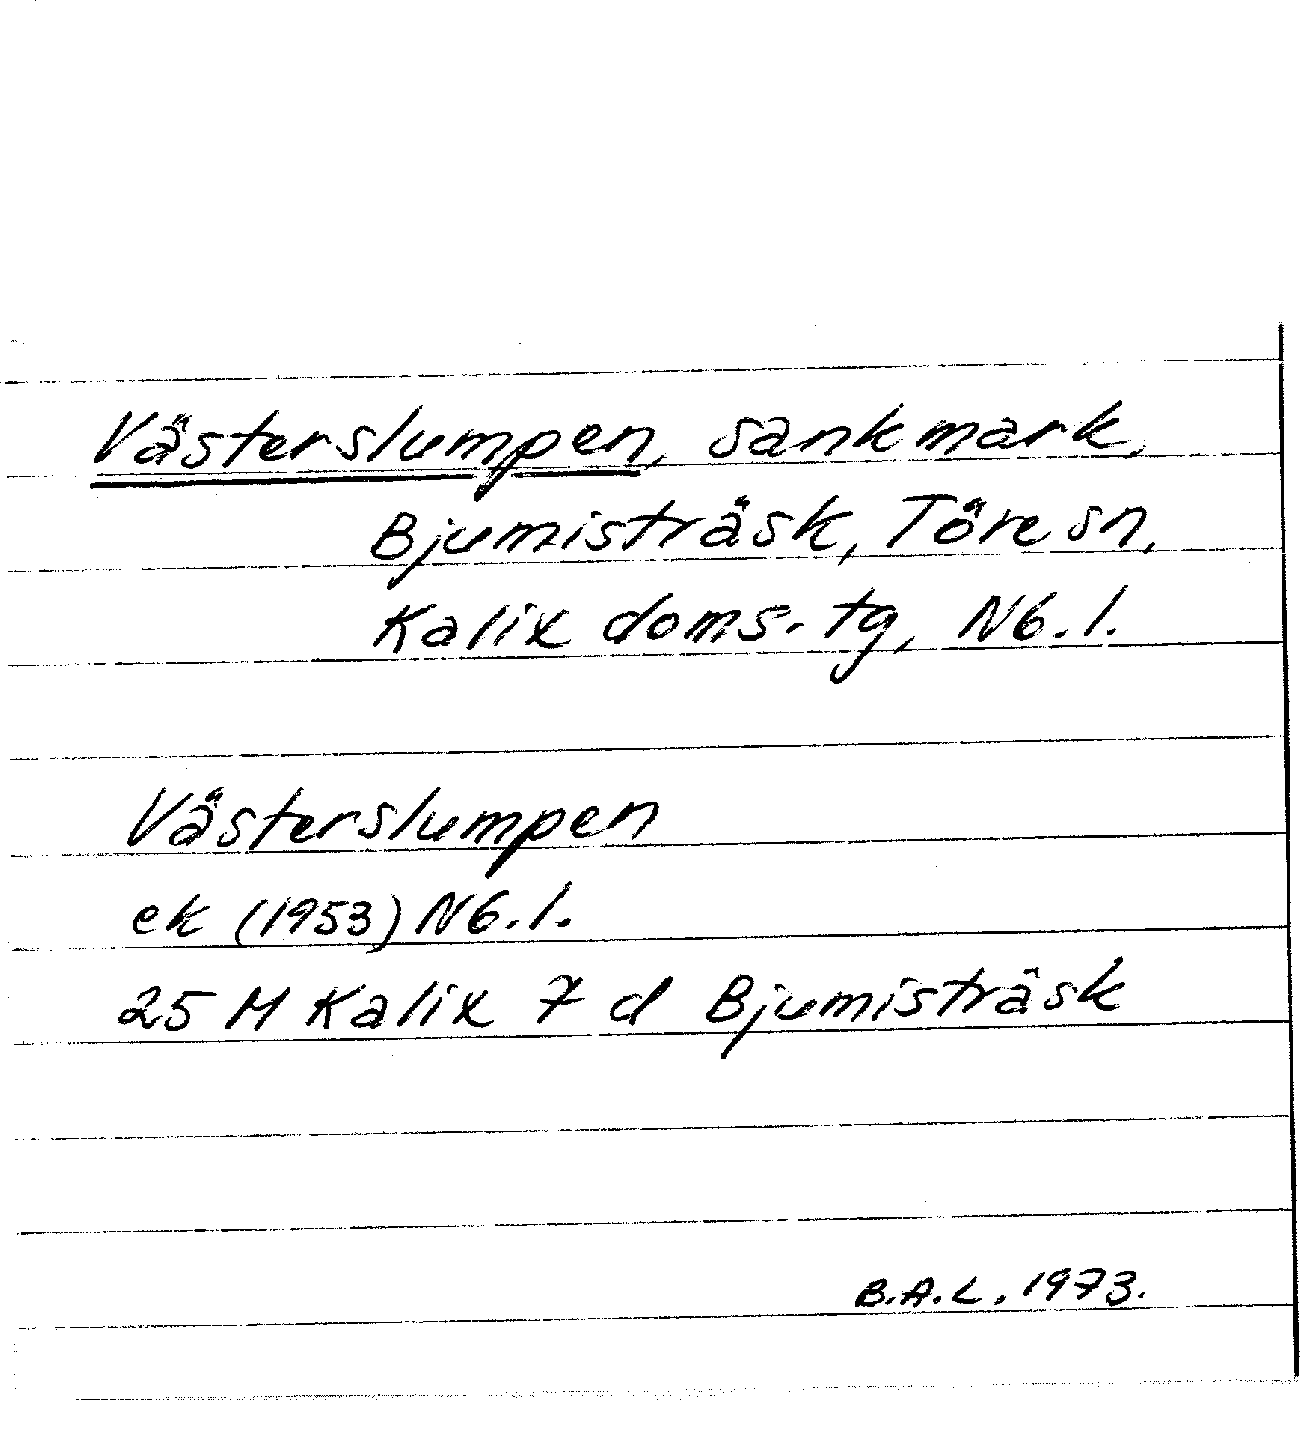 Västerslumpen, sankmark,
Bjumisträsk, Töre sn,
Kalix doms. tg, Nb. l.
Västerslumpen
ek (1953) Nb. l.
25 M Kalix 7 d Bjumisträsk
B.A.L. 1973.